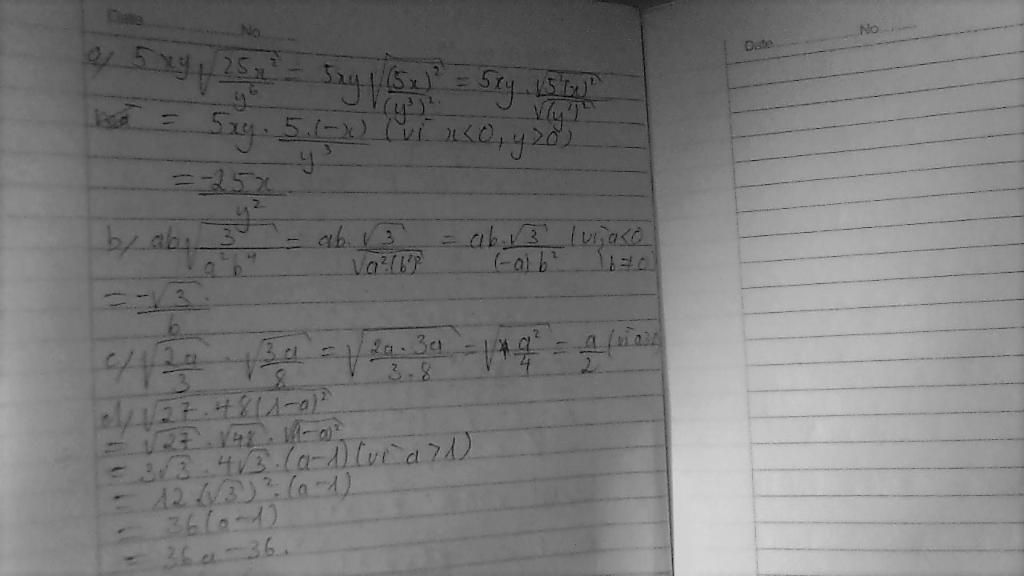 Date No.
Date No.
a/ 5xy√(25x²/y⁶) = 5xy√((5x)²/(y³)²) = 5xy.√5²(x)²/√(y³)²
= 5xy. 5.(-x)/y³ (vì x<0, y>0)
= -25x²/y²
b/ ab√(3/a²b⁴) = ab.√3/√a².(b²)² = ab.√3/(-a)b² (vì a<0 b≠0)
= -√3/b
c/ √(2a/3) . √(3a/8) = √(2a.3a/3.8) = √(a²/4) = a/2 (vì a≥
d/ √27.48(1-a)²
= √27.√48.√(1-a)²
= 3√3.4√3.(a-1)(vì a>1)
= 12.(√3)².(a-1)
= 36(a-1)
= 36a-36.